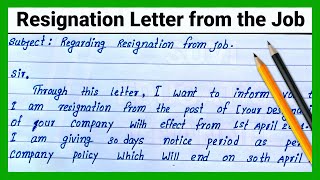 Resignation Letter from the Job
Subject: Regarding Resignation from job.
Sir,
Through this letter, I want to inform
I am resignation from the post of [your
of your company with effect from 1st April
I am giving 30 days notice period as per
company policy which will end on 30th April